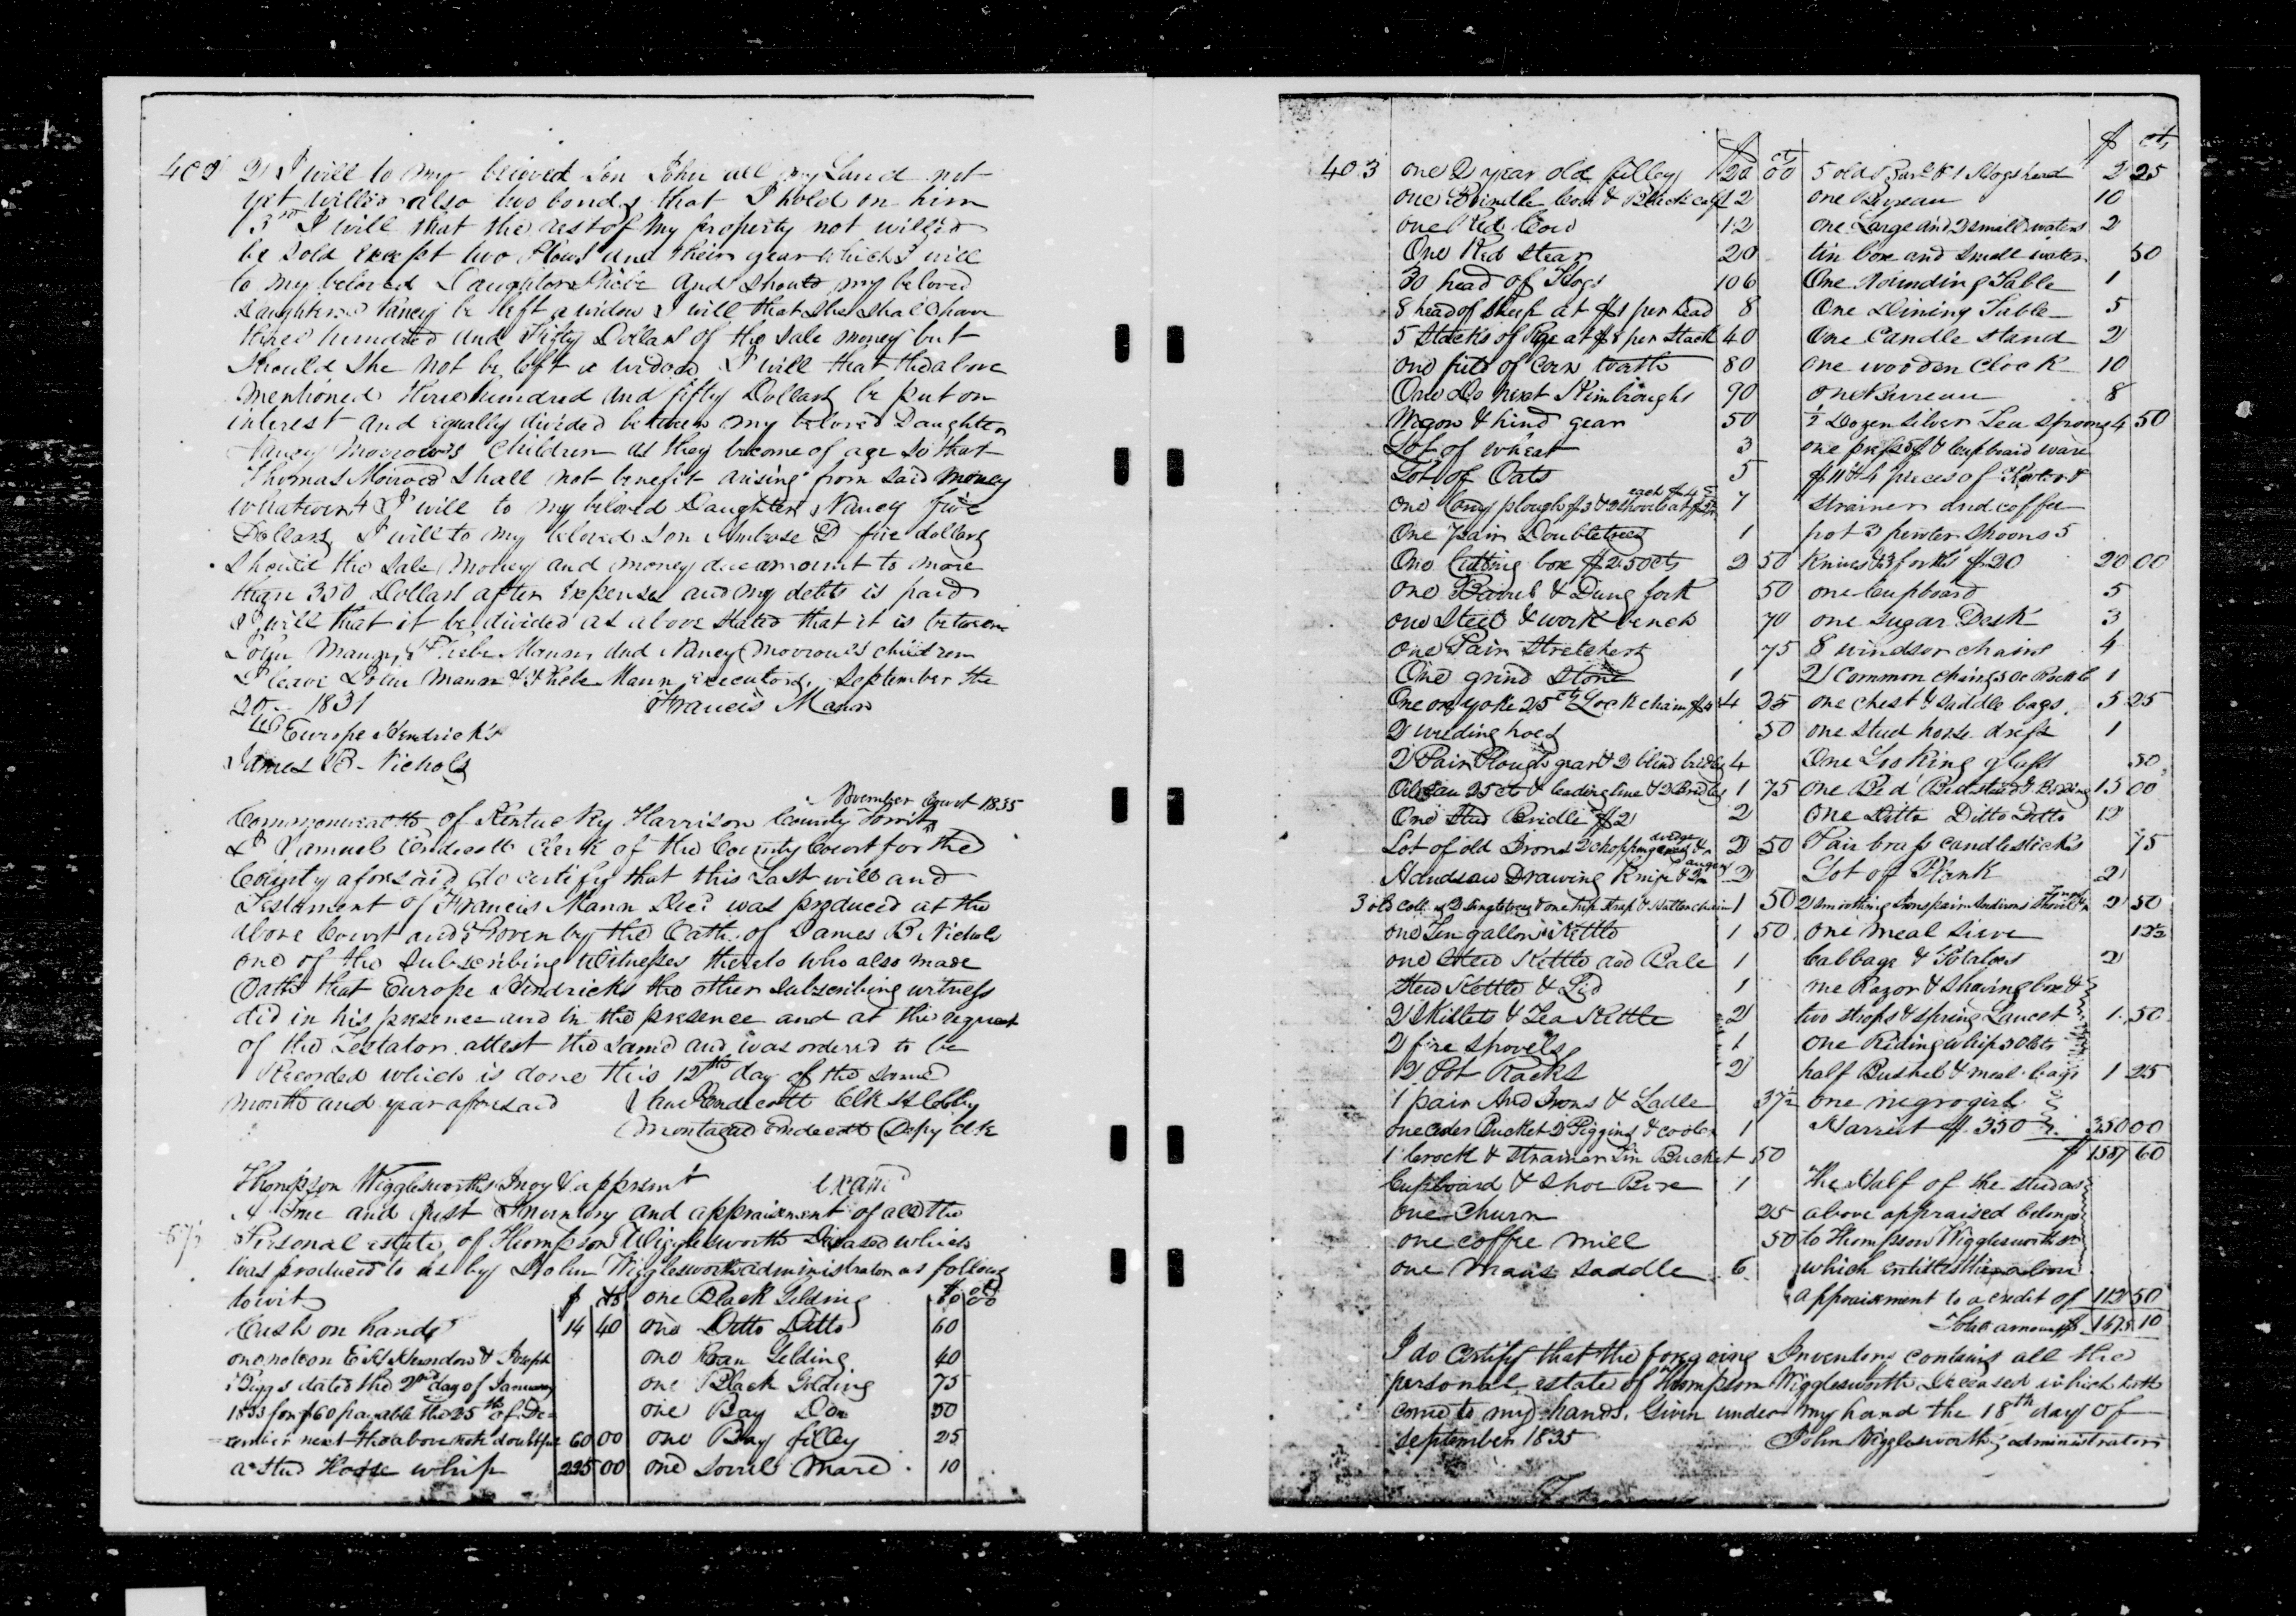 402 2 I will to my beloved Son John all my Land not
yet willed also two bonds that I hold on him
3rd I will that the rest of my property not willed
be sold except two Plows and their gear which I will
to my beloved Daughter Phebe and should my beloved
Daughter Nancy be left a widow I will that she shal have
three hundred and Fifty Dollars of the sale money but
should she not be left a widow I will that the above
mentioned three hundred and fifty Dollars be put on
interest and equally divided between my beloved Daughter
Nancy Morrow's Children as they become of age so that
Thomas Morrow shall not benefit arising from said money
whatever 4 I will to my beloved Daughter Nancy five
Dollars I will to my beloved Son Ambrose D five dollars
should the sale money and money due amount to more
than 350 Dollars after expenses and my debts is paid
I will that it be divided as above stated that it is between
John Mann, Phebe Mann, and Nancy Morrow's children
I leave John Mann & Phebe Mann executors, September the
20 1831 Francis Mann
Europe Hendricks
James B. Nichols
November Court 1835
Commonwealth of Kentucky Harrison County towit
I Samuel Endicott Clerk of the County Court for the
County aforesaid do certify that this Last will and
Testament of Francis Mann Decd was produced at the
above Court and Proven by the Oath of James B. Nichols
one of the subscribing witnesses thereto who also made
Oath that Europe Hendricks the other subscribing witness
did in his presence and in the presence and at the request
of the Testator attest the same and was ordered to be
Recorded which is done this 12th day of the same
month and year aforesaid Endicott Clk
Endicott Depy Clk
Thompson Wigglesworths Invy & apprsmt exam
A True and just Inventory and appraisement of all the
Personal estate of Thompson Wigglesworth Deceased which
was produced to us by John Wigglesworth administrator as follows
towit $ cts one Black Gelding 80 00
Cash on hand 14 40 one Ditto Ditto 60
one note on Herndon & Joseph one Roan Gelding 40
Biggs dated the 2nd day of January one Black Gelding 75
1833 for $60 payable the 25th of De one Bay 50
cember next the above note doubtful 60 00 one Bay filley 25
a Stud Horse whip 225 00 one Sorrel Mare 10
403 one 2 year old filley $20 00
one Brindle Cow & Black calf 12
one Red Cow 12
One Red Stear 20
30 head of Hogs 106
8 head of sheep at $1 per head 8
5 Stacks of Rye at $8 per Stack 40
one field of Corn worth 80
One Do next Kimbroughs 90
Wagon & hind gear 50
Lot of wheat 3
Lot of Oats 5
One Cary plough $3 & 2 shovels at each 7
One Pair Doubletrees 1
One Cutting box $2.50cts 2 50
one Barrel & Dung fork 50
one Steel & work bench 70
one Pair Stretchers 75
One grind Stone 1
One ox yoke 25cts Lock chain $4 4 25
2 weeding hoes 50
2 Pair Plough gear & 2 blind bridles 4
25 ct & leading line & 2 Bridles 1 75
One Stud Bridle $2 2
Lot of old Irons 2 chopping axes & wedge 2 50
Handsaw Drawing Knife & 2 augers 2
3 old 2 Singletrees & one 1 50
one Ten gallon Kettle 1 50
one Stew Kettle and Pale 1
Stew Kettle & Lid 1
2 Skillets & Tea Kettle 2
2 fire shovels 1
2 Pot Racks 2
1 pair And Irons & Ladle 37½
one Ceder Bucket 2 Piggins & cooler 1
1 Crock & Strainer Tin Bucket 50
Cupboard & Shoe Box 1
one Churn 25
one coffee mill 50
one Mans Saddle 6
$ cts
5 old Barl & 1 Hogshead 2 25
one Bureau 10
one Large and 2 small waters 2
tin box and small waters 50
One Rounding Table 1
One Dining Table 5
One Candle stand 2
one wooden Clock 10
one Bureau 8
½ Dozen Silver Tea spoons 4 50
one press & Cupboard ware
$11 & 4 pieces of Pewter &
strainer and coffee
pot 3 pewter spoons 5
Knives & 3 forks $20 20 00
one Cupboard 5
one Sugar Desk 3
8 windsor chairs 4
2 Common chairs 1
one chest & saddle bags 5 25
one stud horse dress 1
One Looking glass 50
one Bed Bedstead & Beding 15 00
One Ditto Ditto Ditto 12
Pair brass candlesticks 75
Lot of Plank 2
2 Smoothing Irons pair Andirons Shovel & Tongs 2 50
one meal Sieve 12½
Cabbage & Potatoes 2
one Razor & Shaving box &
two strops & Spring Lancet 1 50
one Riding whip 50cts
half Bushel & meal bags 1 25
one negro girl
Harriet $350 350 00
$ 1587 60
The Half of the stud as
above appraised belongs
to Thompson Wigglesworth
which entitles the above
appraisement to a credit of 112 50
Total amount $ 1475 10
I do certify that the foregoing Inventory contains all the
personal estate of Thompson Wigglesworth Deceased which hath
come to my hands. Given under my hand the 18th day of
september 1835 John Wigglesworth administrator